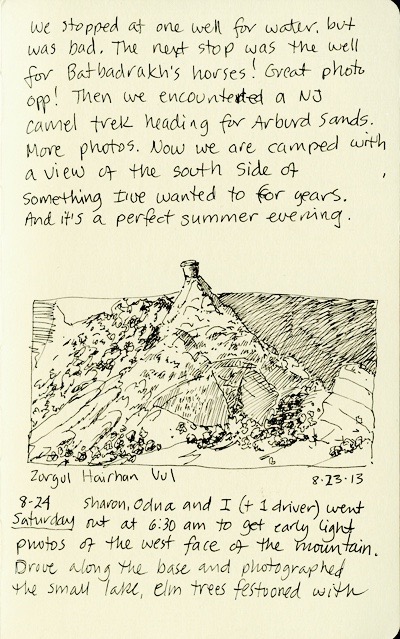 We stopped at one well for water, but
was bad. The next stop was the well
for Batbadrakh's horses! Great photo
opp! Then we encountered a NJ
camel trek heading for Arburd Sands.
More photos. Now we are camped with
a view of the south side of
something I've wanted to for years.
And it's a perfect summer evening.
Zorgol Hairhan Uul 8-23-13
8-24 Sharon, Odna and I (+ 1 driver) went
Saturday out at 6:30 am to get early light
photos of the west face of the mountain.
Drove along the base and photographed
the small lake, elm trees festooned with